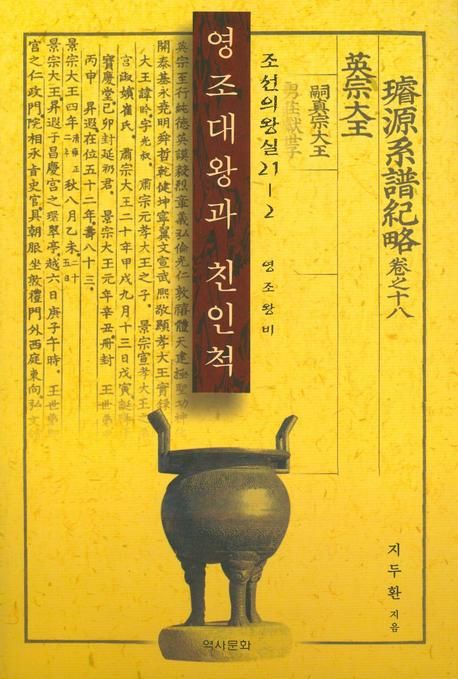 영조대왕과 친인척
조선의 왕실 21-2 영조왕비
璿源系譜紀略 卷之十八
英宗大王
嗣眞宗大王
英宗至行純德英謨毅烈章義弘倫光仁敦禧體天建極聖功神
開泰基永堯明舜哲乾健坤寧翼文宣武熙敬顯孝大王實錄
大王諱昑字光叔 肅宗元孝大王之子 景宗宣孝大王
宮淑嬪崔氏 肅宗大王二十年甲戌九月十三日戊寅誕
寶慶堂己卯封延礽君 景宗大王元年辛丑冊封 王世弟
丙申 昇遐在位五十二年壽八十三
景宗大王四年 清雍正二年 秋八月乙未 二十五日
景宗大王昇遐于昌慶宮之環翠亭越六日庚子午時 王世弟
宮之仁政門院相承旨史官具朝服坐敦禮門外西庭東向弘文
지두환 지음
역사문화